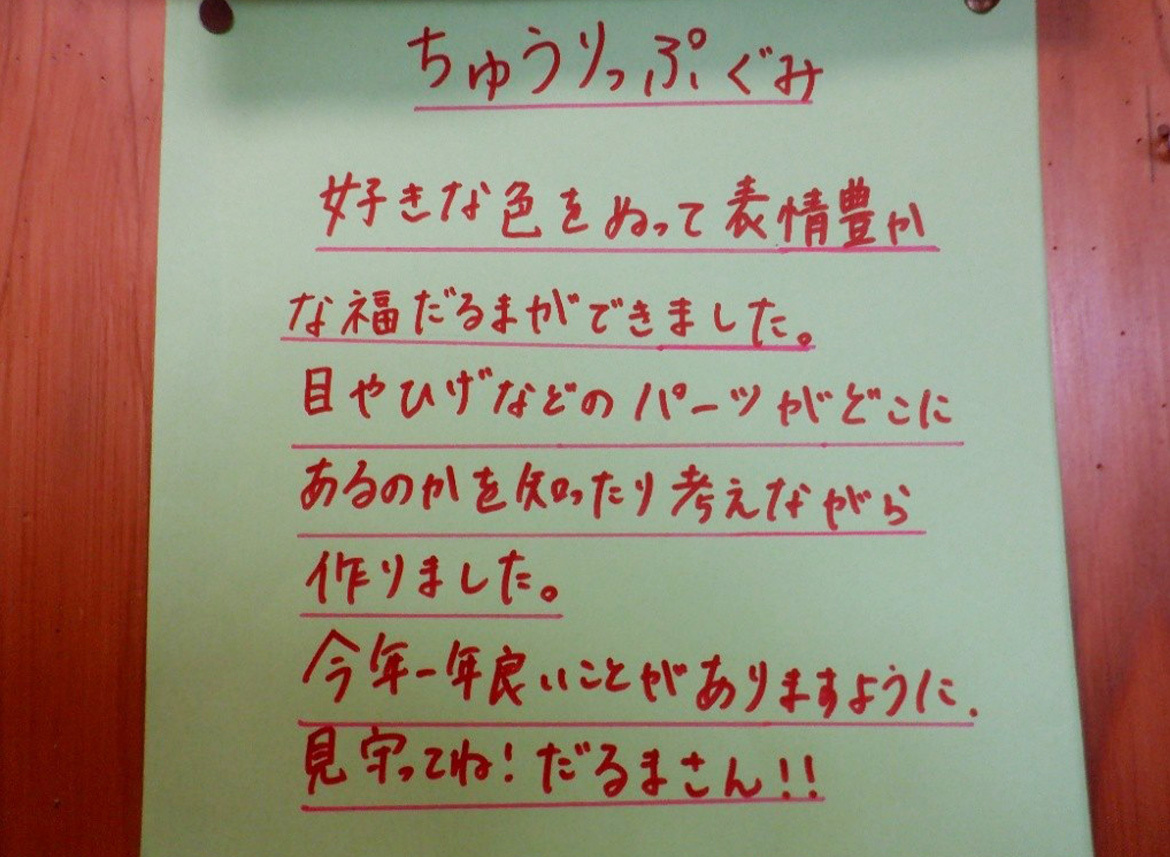 ちゅうりっぷぐみ
好きな色をぬって表情豊か
な福だるまができました。
目やひげなどのパーツがどこに
あるのかを知ったり考えながら
作りました。
今年一年良いことがありますように、
見守ってね！だるまさん！！